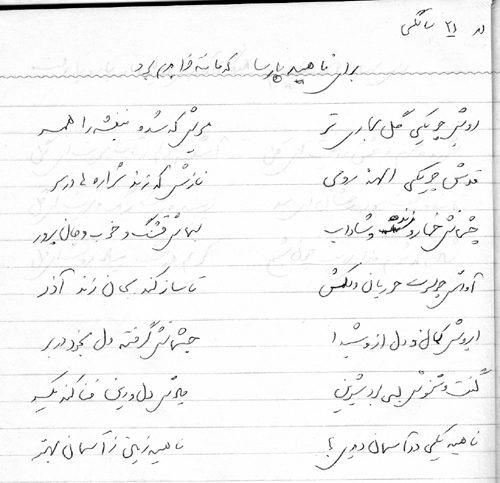 در ۲۱ سالگی
برای ناهید پارسا که مانند خواهرم بود
رویش چو یکی گل بهاری تر مویش که شده بنفشه را همسر
قدش چو یکی الهه رومی نازش که زند شراره ها در بر
چشمانش خمار و زنده و شاداب لبهاش قشنگ و خوب و جان پرور
آوازش چو حوریان دلکش تا ساز کند بجان زند آذر
ابروش کمان و دل از او شیدا چشمانش گرفته دل بخود در بر
گفت و دل و دین فنا کند یکسر
ناهید یکی در آسمان دیدی؟ ناهید زمین ز آسمان بهتر